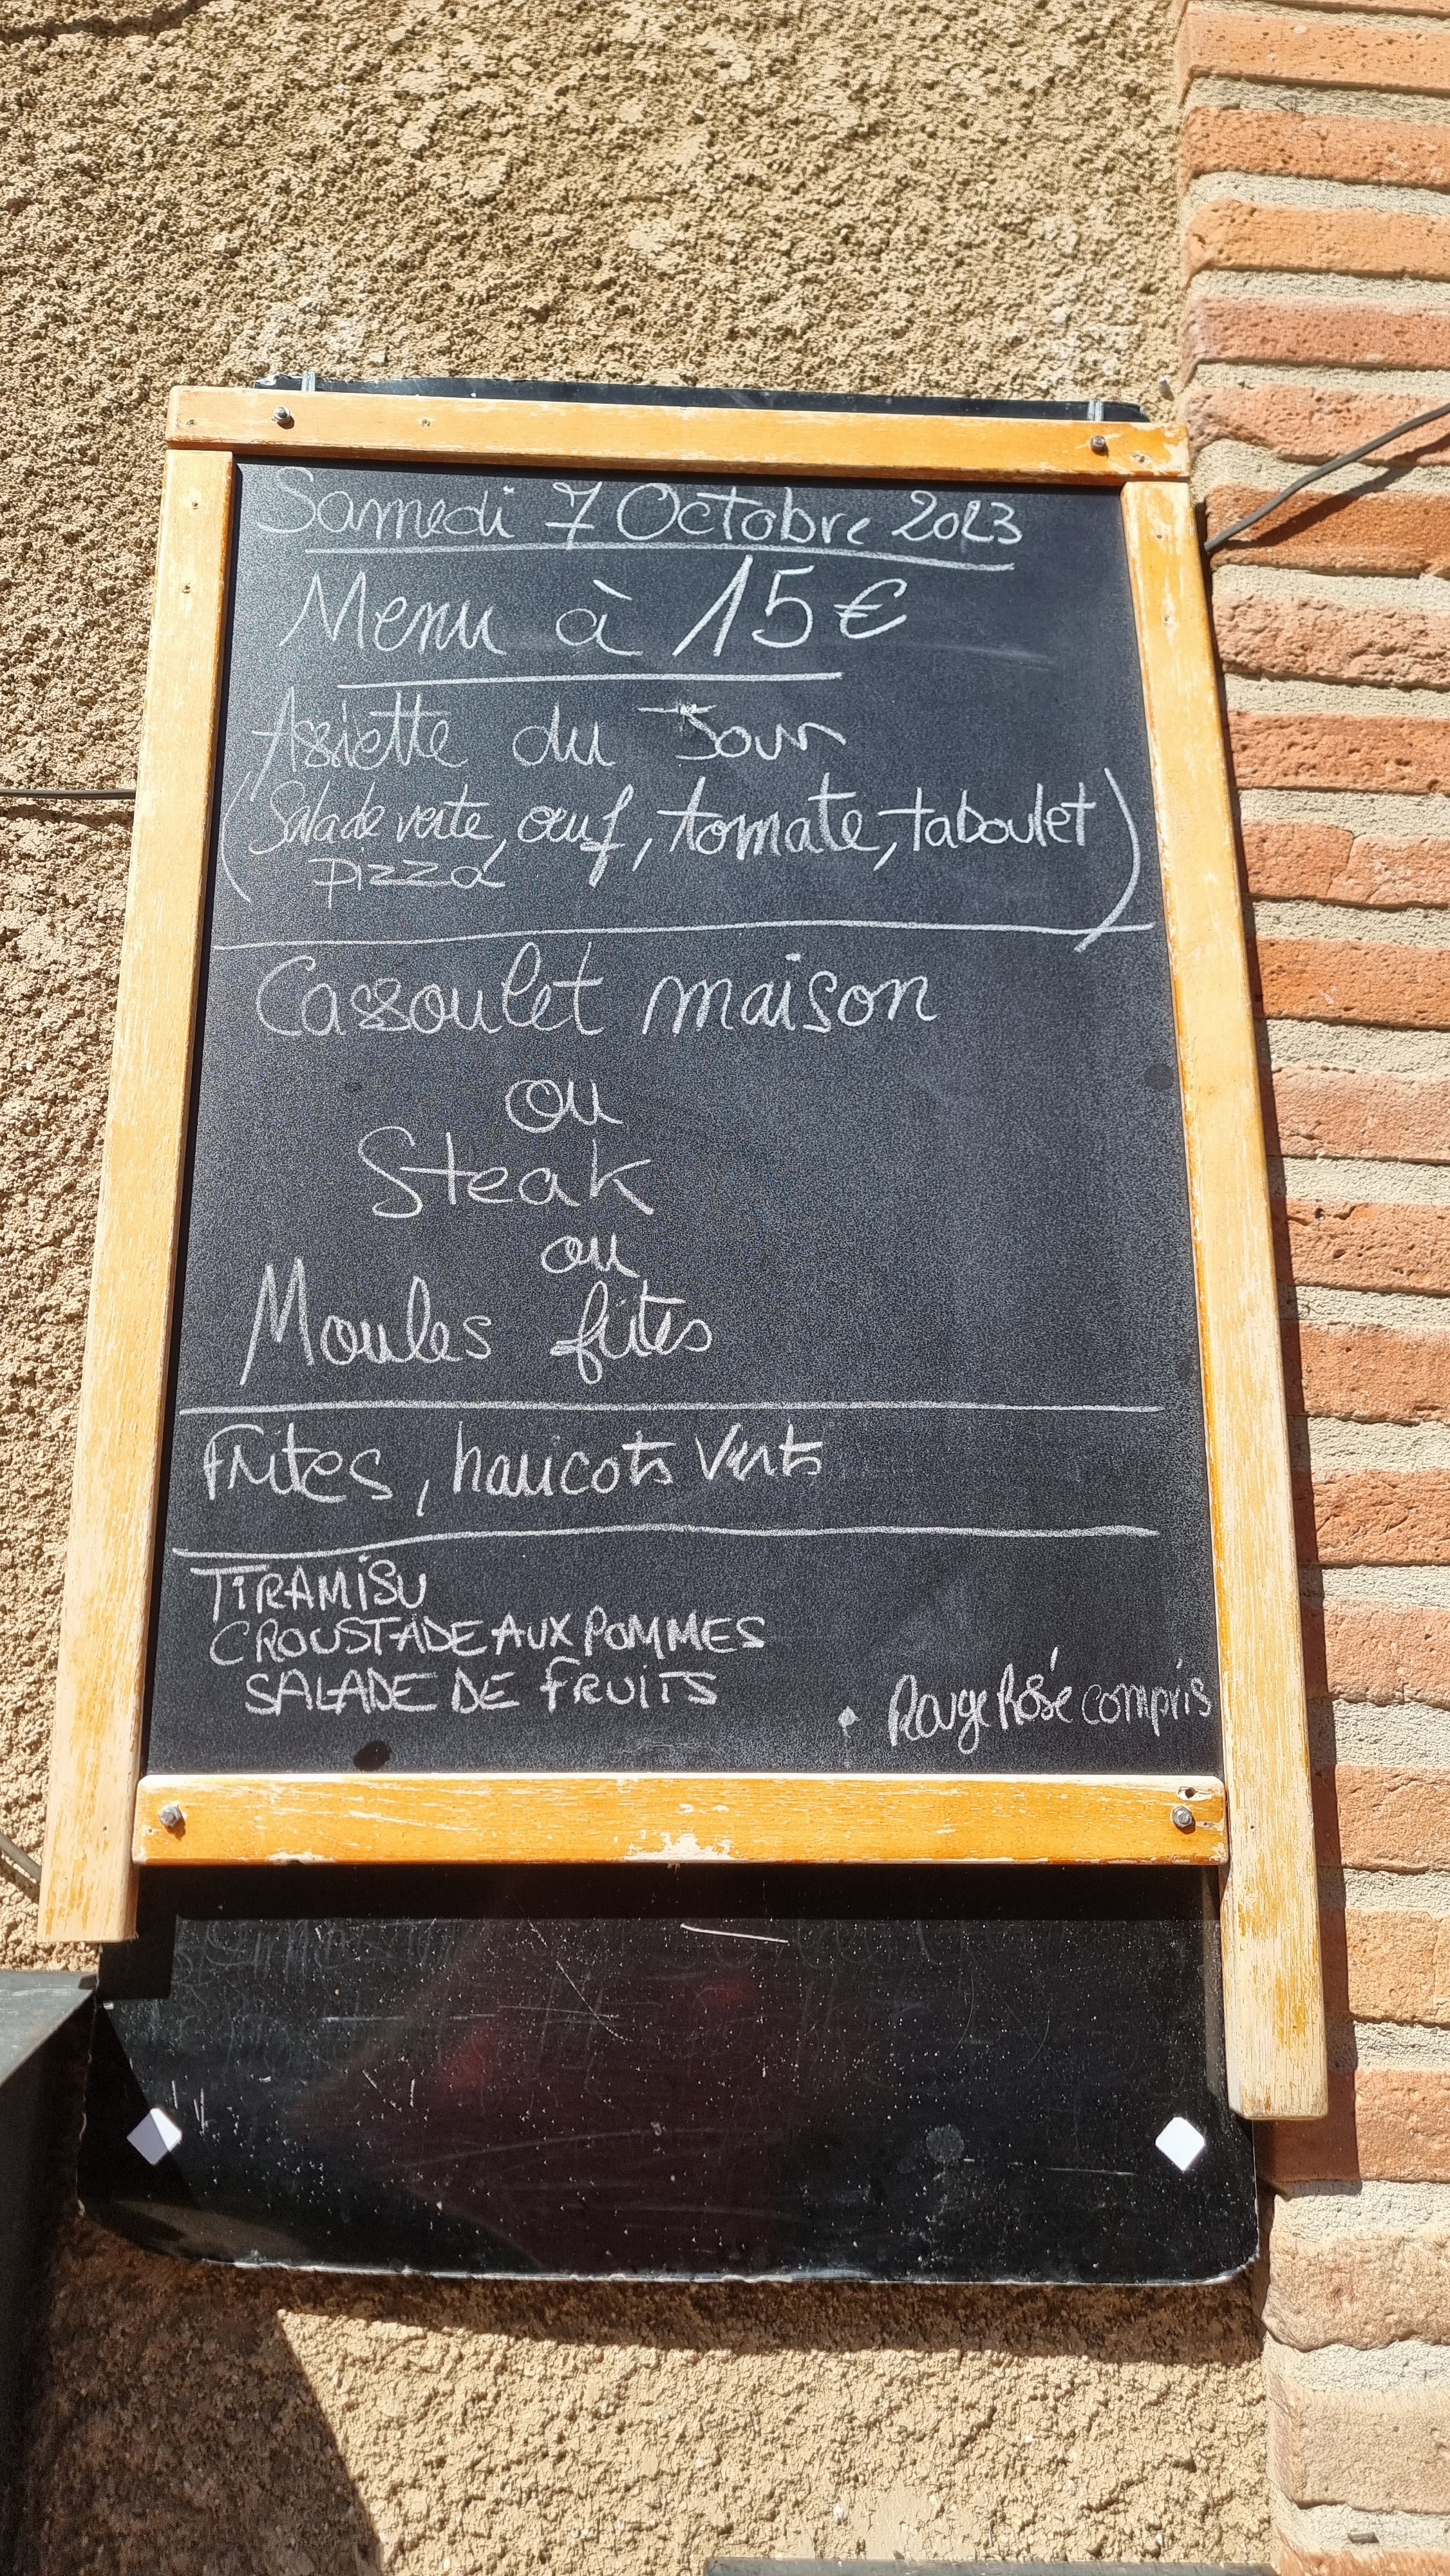 Samedi 7 Octobre 2023
Menu à 15€
Assiette du Jour
(Salade verte, œuf, tomate, taboulet
pizza)
Cassoulet maison
ou
Steak
ou
Moules frites
Frites, haricots verts
TIRAMISU
CROUSTADE AUX POMMES
SALADE DE FRUITS
• Rouge Rosé compris